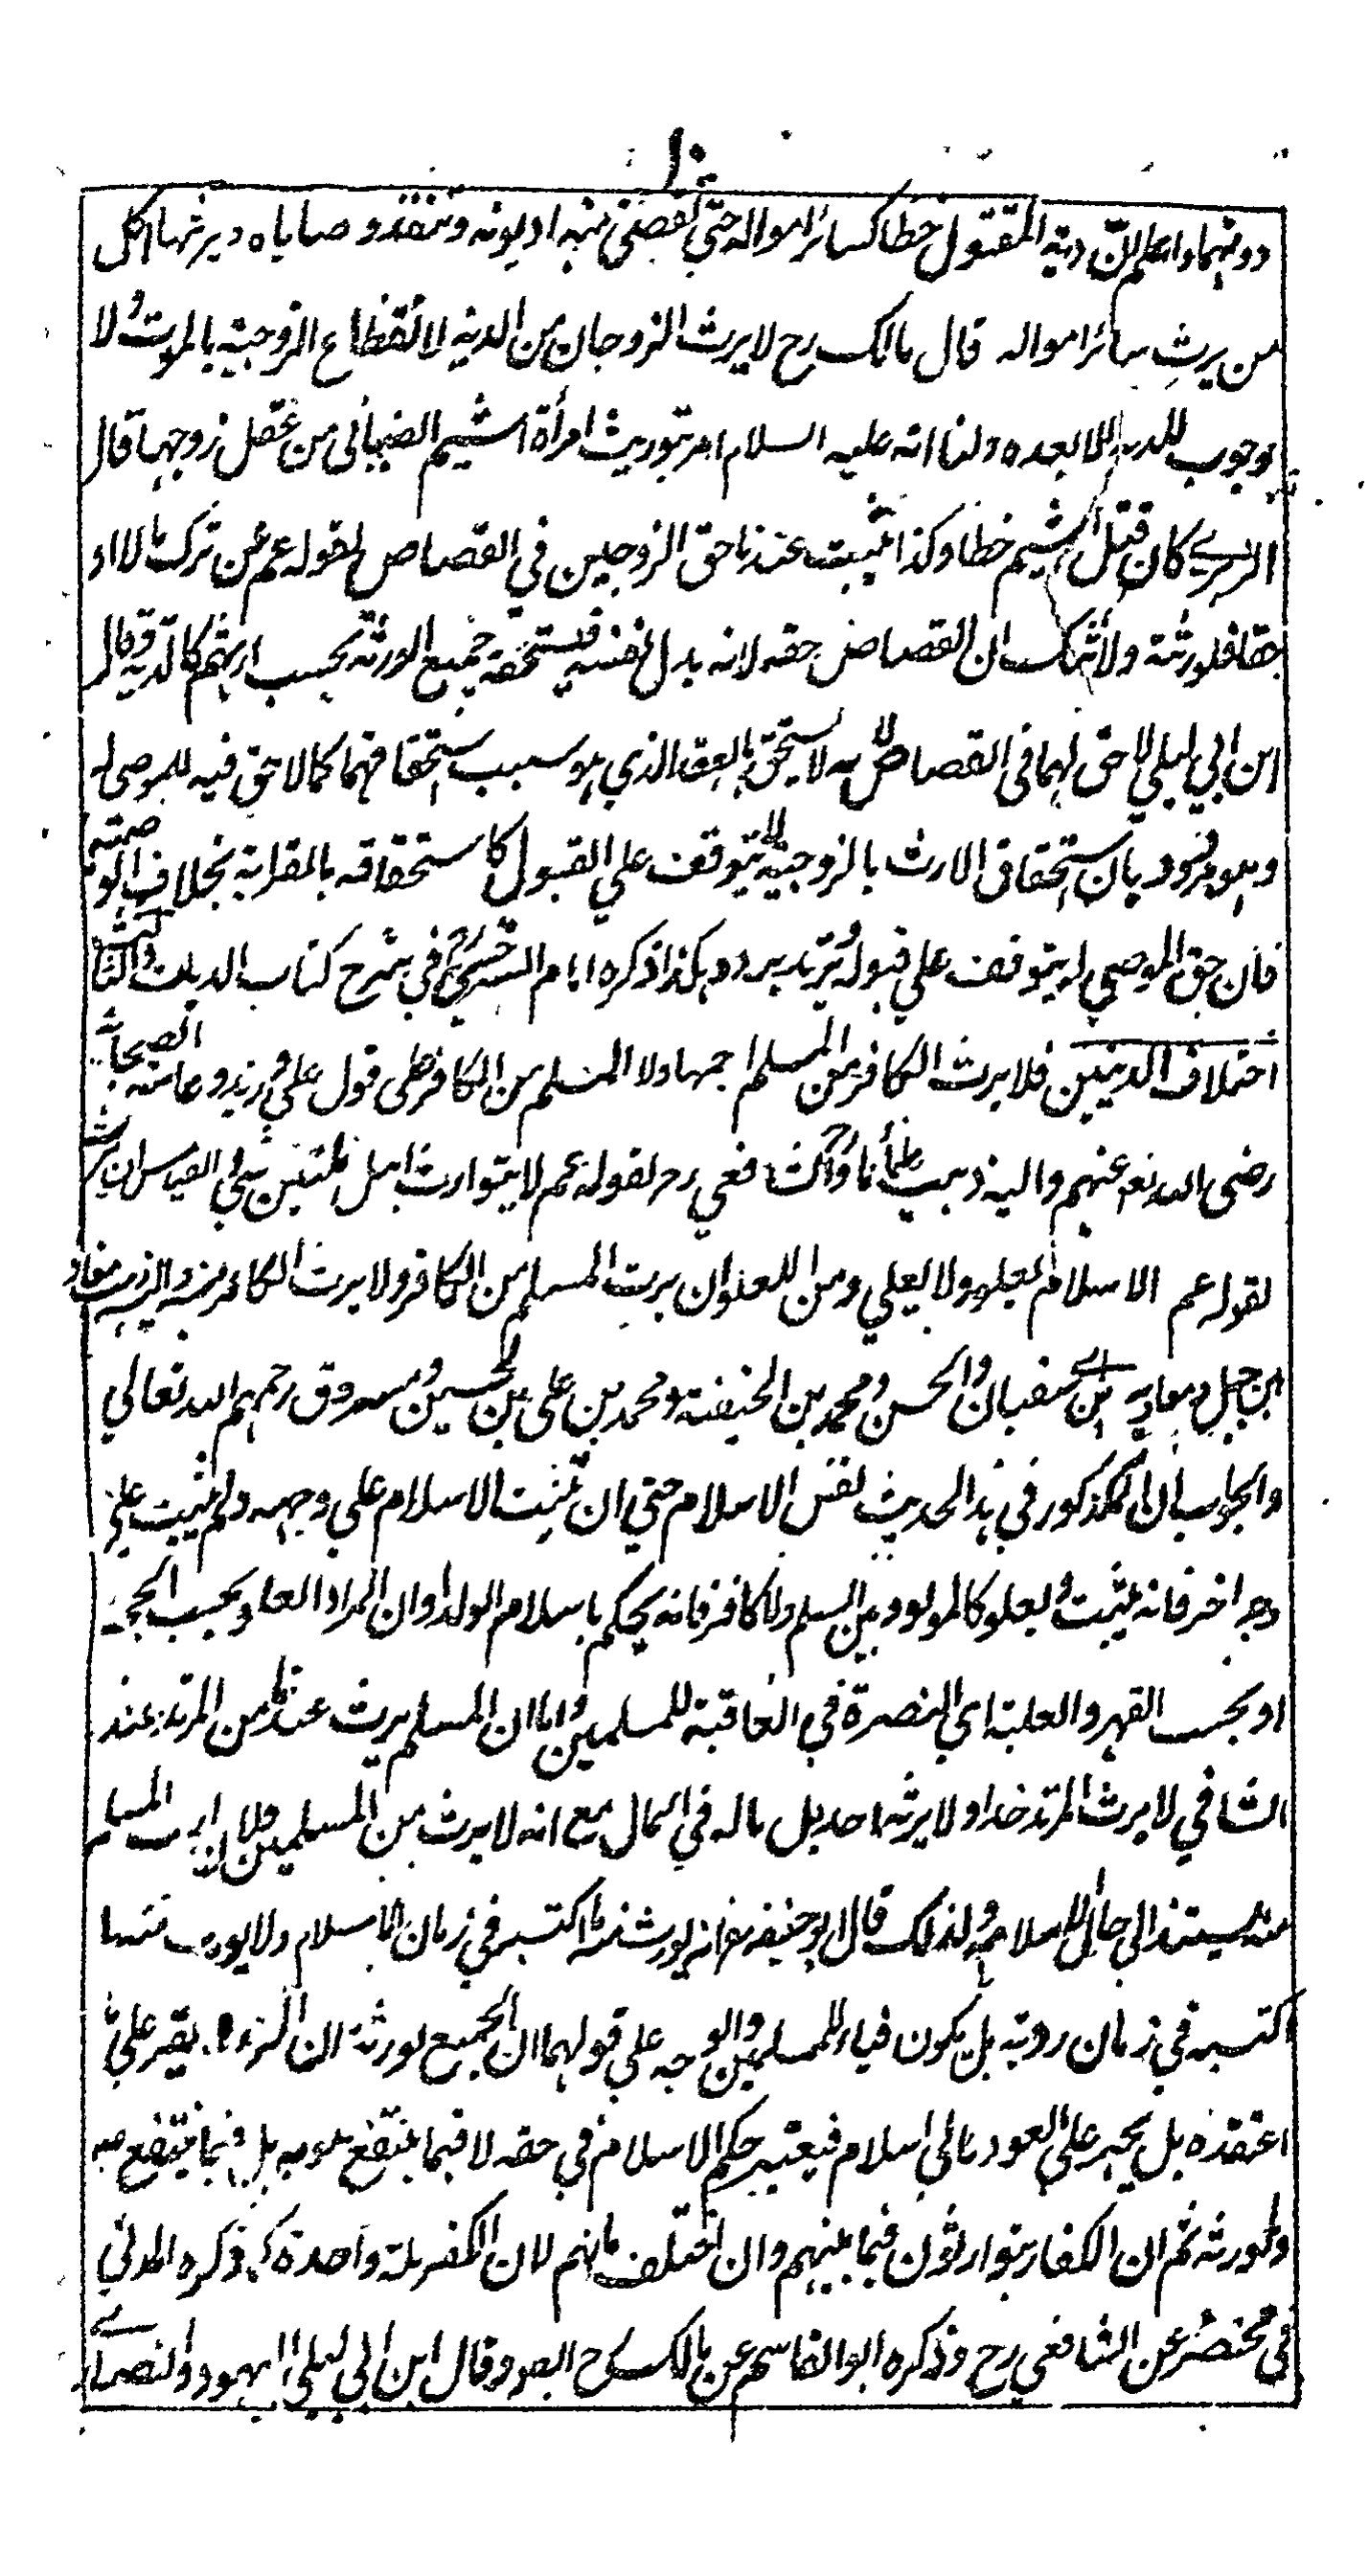 ١٠
دونهما واعلم ان دية المقتول خطأ كسائر امواله حتى تقضى منها ديونه وتنفذ وصاياه ويرثها كل
من يرث سائر امواله قال مالك رح لا يرث الزوجان من الدية لانقطاع الزوجية بالموت ولا
وجوب للدية الا بعده ولنا انه عليه السلام امر بتوريث امرأة اشيم الضبابي من عقل زوجها قال
الزهري كان قتل اشيم خطا وكذا يثبت عندنا حق الزوجين في القصاص لقوله عم من ترك مالا او
حقا فلورثته ولا شك ان القصاص حقه لانه بدل نفسه فيستحقه جميع الورثة بحسب ارثهم كالدية وقال
ابن ابي ليلي لا حق لهما في القصاص لانه لا يستحق بالعقد الذي هو سبب استحقاقهما كما لا حق فيه للموصى له
وهو مردود بان استحقاق الارث بالزوجية لا يتوقف علي القبول كاستحقاقه بالقرابة بخلاف الوصية
فان حق الموصي له يتوقف علي قبوله ويرتد برده هكذا ذكره الامام السرخسي في شرح كتاب الديات والثالث
اختلاف الدينين فلا يرث الكافر من المسلم اجماعا ولا المسلم من الكافر على قول علي وزيد وعامة الصحابة
رضى الله تعم عنهم واليه ذهب علماؤنا والشافعي رح لقوله عم لا يتوارث اهل ملتين بشئ والقياس ان يرث
لقوله عم الاسلام يعلو ولا يعلي ومن العلو ان يرث المسلم من الكافر ولا يرث الكافر منه واليه ذهب معاذ
بن جبل ومعاوية بن ابي سفيان والحسن ومحمد بن الحنفية ومحمد بن على بن الحسين ومسروق رحمهم الله تعالي
والجواب ان المذكور في هذا الحديث نفس الاسلام حتي ان يثبت الاسلام علي وجه ولم يثبت علي
وجه اخر فانه يثبت ويعلو كالمولود بين المسلم والكافر فانه يحكم باسلام الولد او ان المراد العلو بحسب الحجة
او بحسب القهر والغلبة اي النصرة في العاقبة للمسلمين واما ان المسلم يرث عندنا من المرتد عند
الشافعي لا يرث المرتد احدا ولا يرثه احد بل ماله في المال مع انه لا يرث من المسلمين فلان ارث المسلم
منه يستند الي حال الاسلام ولذلك قال ابو حنيفة رح انه يورث منه ما اكتسبه في زمان الاسلام ولا يورث منه ما
اكتسبه في زمان ردته بل يكون فيئا للمسلمين والوجه علي قولهما ان الجميع لورثته ان المرتد لا يقر علي ما
اعتقده بل يجبر علي العود الي الاسلام فيعتبر حكم الاسلام في حقه لا فيما ينتفع هو به بل فيما ينتفع به
ورثته ثم ان الكفار يتوارثون فيما بينهم وان اختلف مللهم لان الكفر ملة واحدة كذا ذكره المزني
في مختصره عن الشافعي رح وذكره ابو القاسم عن مالك رح وقال ابن ابي ليلي اليهود والنصاري